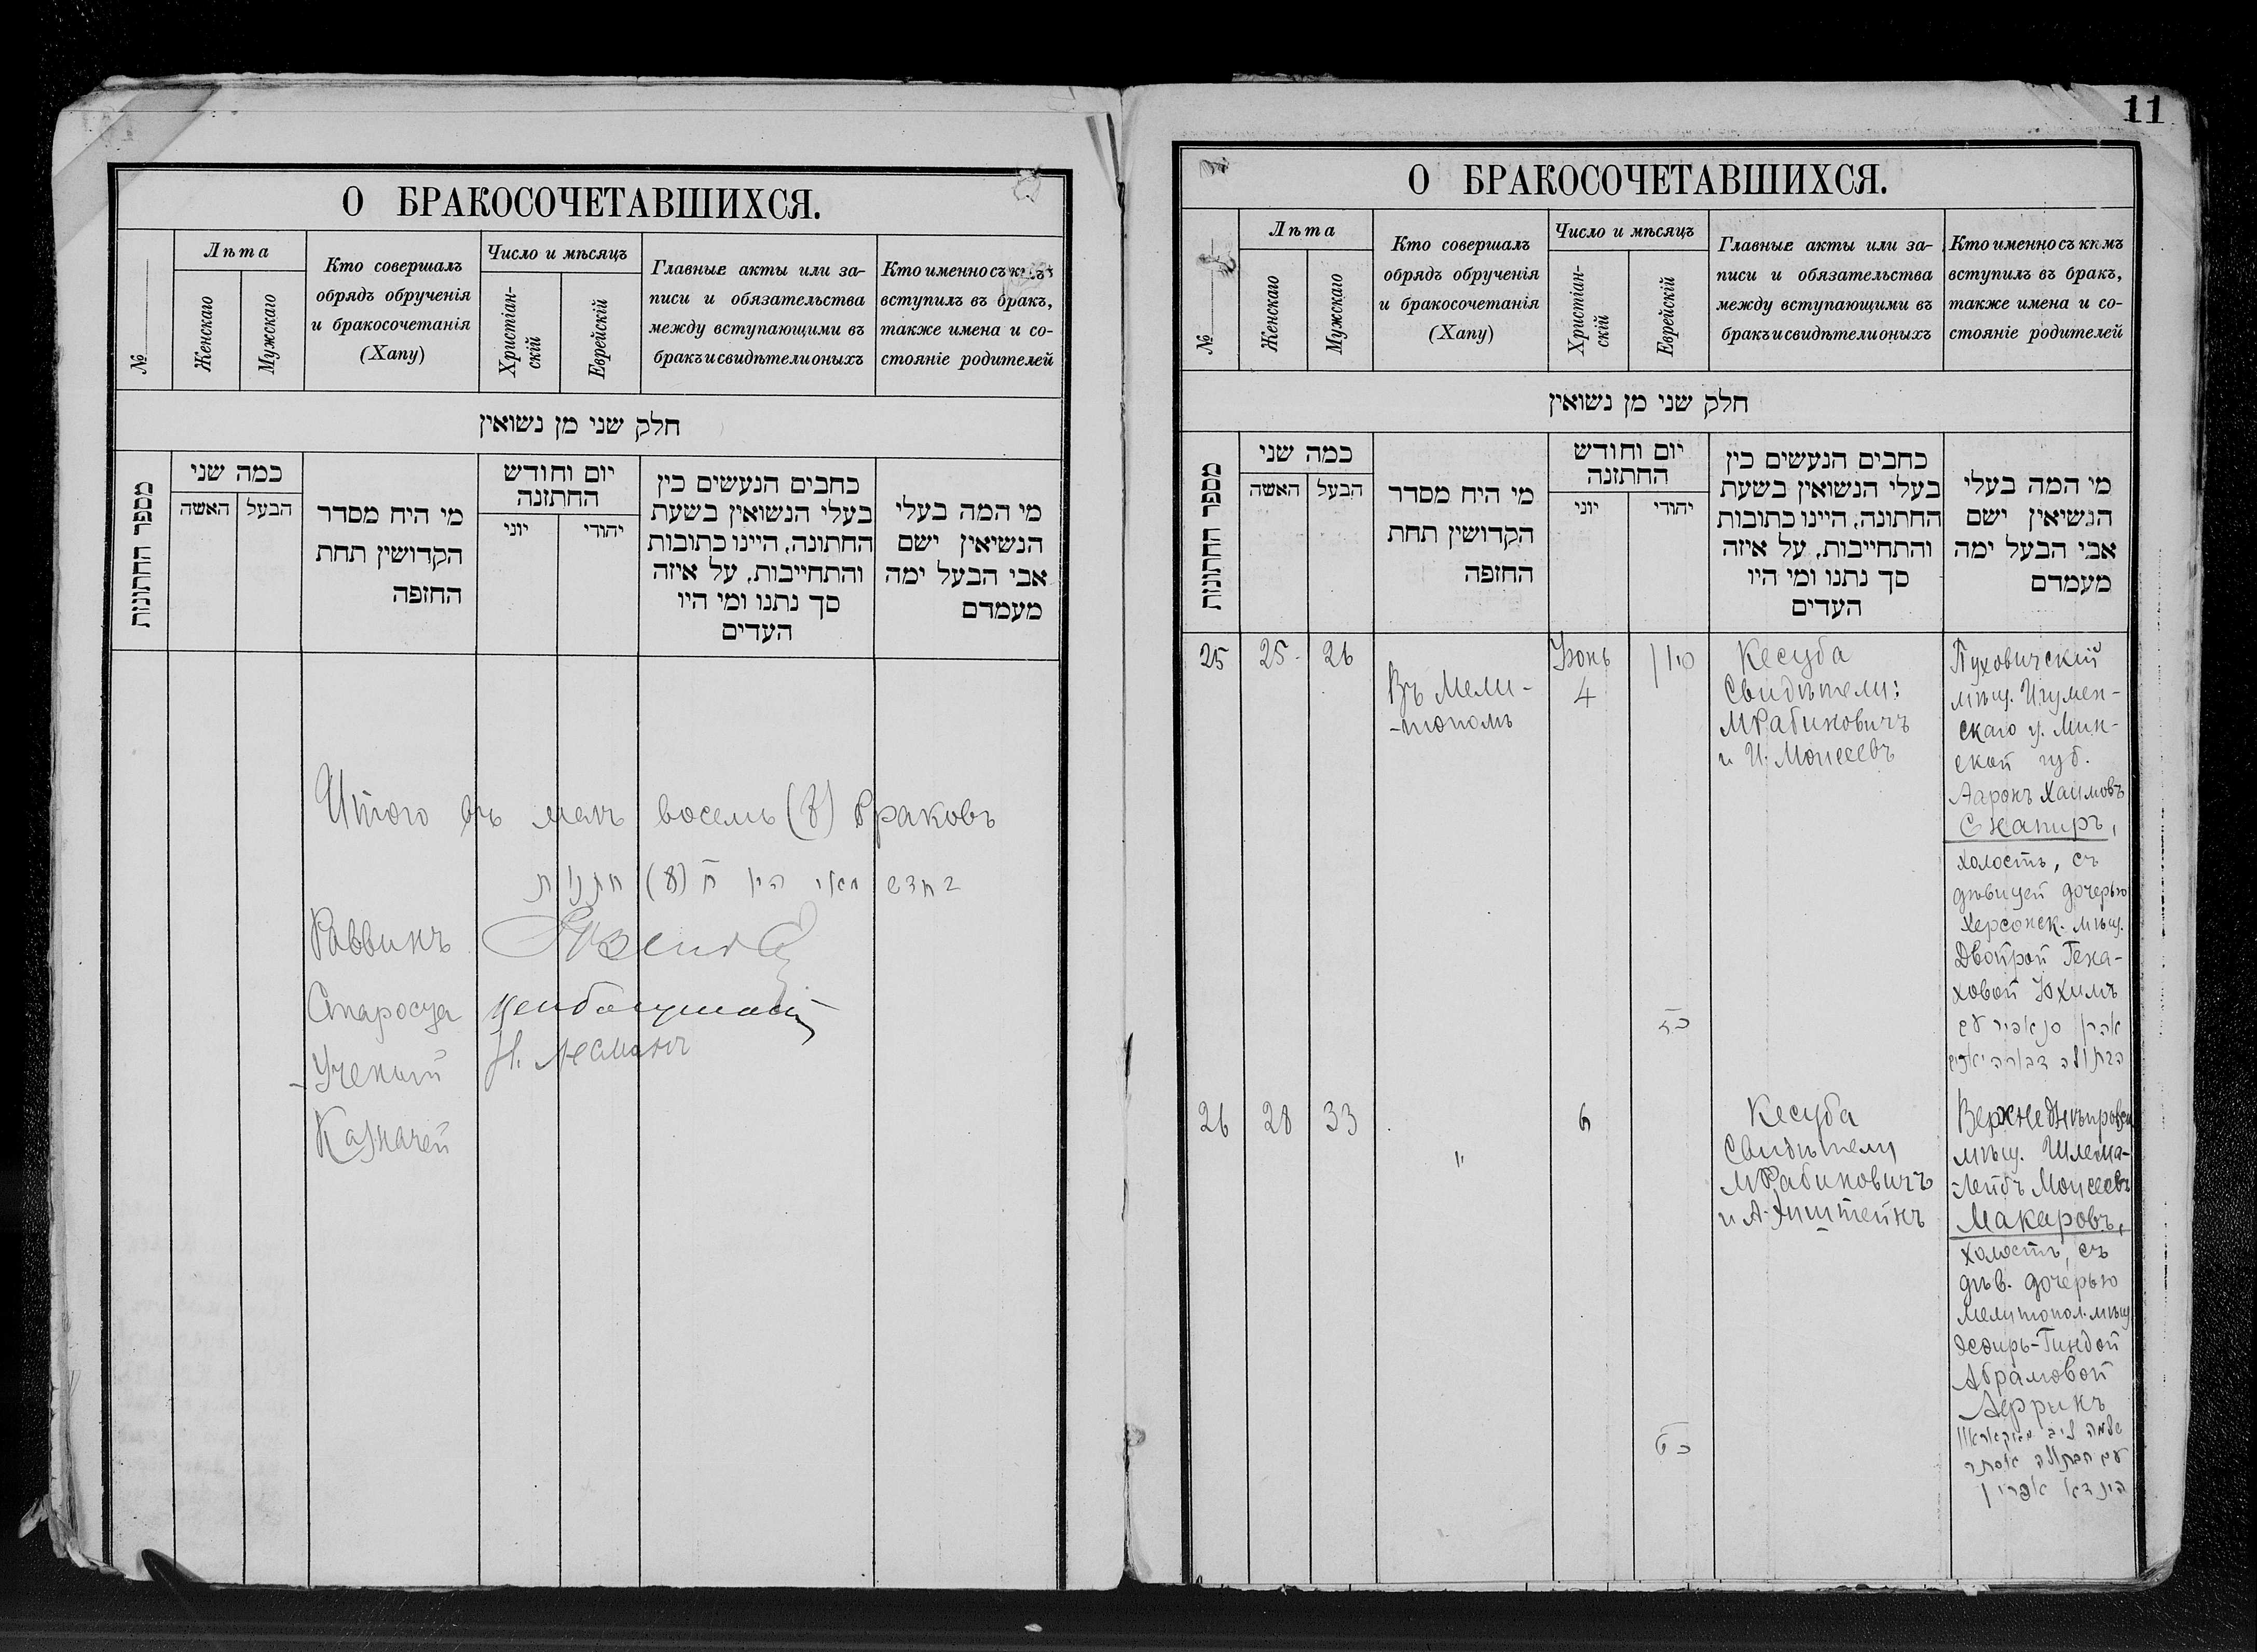 О БРАКОСОЧЕТАВШИХСЯ.
№
Лѣта
Женскаго
Мужскаго
Кто совершалъ
обрядъ обрученія
и бракосочетанія
(Хапу)
Число и мѣсяцъ
Христіан-
скій
Еврейскій
Главные акты или за-
писи и обязательства
между вступающими въ
бракъ и свидѣтели оныхъ
Кто именно съ кѣмъ
вступилъ въ бракъ,
также имена и со-
стояніе родителей
חלק שני מן נשואין
מספר החתונות
כמה שני
האשה
הבעל
מי היח מסדר
הקדושין תחת
החופה
יום וחודש
החתונה
יוני
יהודי
כתבים הנעשים בין
בעלי הנשואין בשעת
החתונה, היינו כתובות
והתחייבות, על איזה
סך נתנו ומי היו
העדים
מי המה בעלי
הנשיאין ישם
אבי הבעל ימה
מעמדם
Итого въ маѣ восемь (8) браковъ
בחדש מאי היו ח (8) חתנות
Раввинъ
Староста
Ученый Н. Лесманъ
Казначей
11
О БРАКОСОЧЕТАВШИХСЯ.
№
Лѣта
Женскаго
Мужскаго
Кто совершалъ
обрядъ обрученія
и бракосочетанія
(Хапу)
Число и мѣсяцъ
Христіан-
скій
Еврейскій
Главные акты или за-
писи и обязательства
между вступающими въ
бракъ и свидѣтели оныхъ
Кто именно съ кѣмъ
вступилъ въ бракъ,
также имена и со-
стояніе родителей
חלק שני מן נשואין
מספר החתונות
כמה שני
האשה
הבעל
מי היח מסדר
הקדושין תחת
החופה
יום וחודש
החתונה
יוני
יהודי
כתבים הנעשים בין
בעלי הנשואין בשעת
החתונה, היינו כתובות
והתחייבות, על איזה
סך נתנו ומי היו
העדים
מי המה בעלי
הנשיאין ישם
אבי הבעל ימה
מעמדם
25
25
26
Въ Мели-
-тополѣ
Іюнь
4
סיון
כז
Кесуба
Свидѣтели:
М Рабиновичъ
и И. Моисеевъ
Пуховичскій
мѣщ. Игумен-
скаго у. Мин-
ской губ.
Ааронъ Хаимовъ
Снапиръ,
холостъ, съ
дѣвицей дочерью
Херсонск. мѣщ.
Двойрой Гена-
ховой Юхимъ
אהרן סנאפיר עם
הבתולה דבורה
26
28
33
"
6
כט
Кесуба
Свидѣтели
М Рабиновичъ
и А. Эпштейнъ
Верхнеднѣпровск
мѣщ. Шлема-
-Лейбъ Моисеевъ
Макаровъ,
холостъ, съ
дѣв. дочерью
Мелитопол. мѣщ
Эсѳирь-Гиндой
Абрамовой
Аерринъ
שלמה ליב מאקאראוו
עם הבתולה אסתר
הינדא אפרין